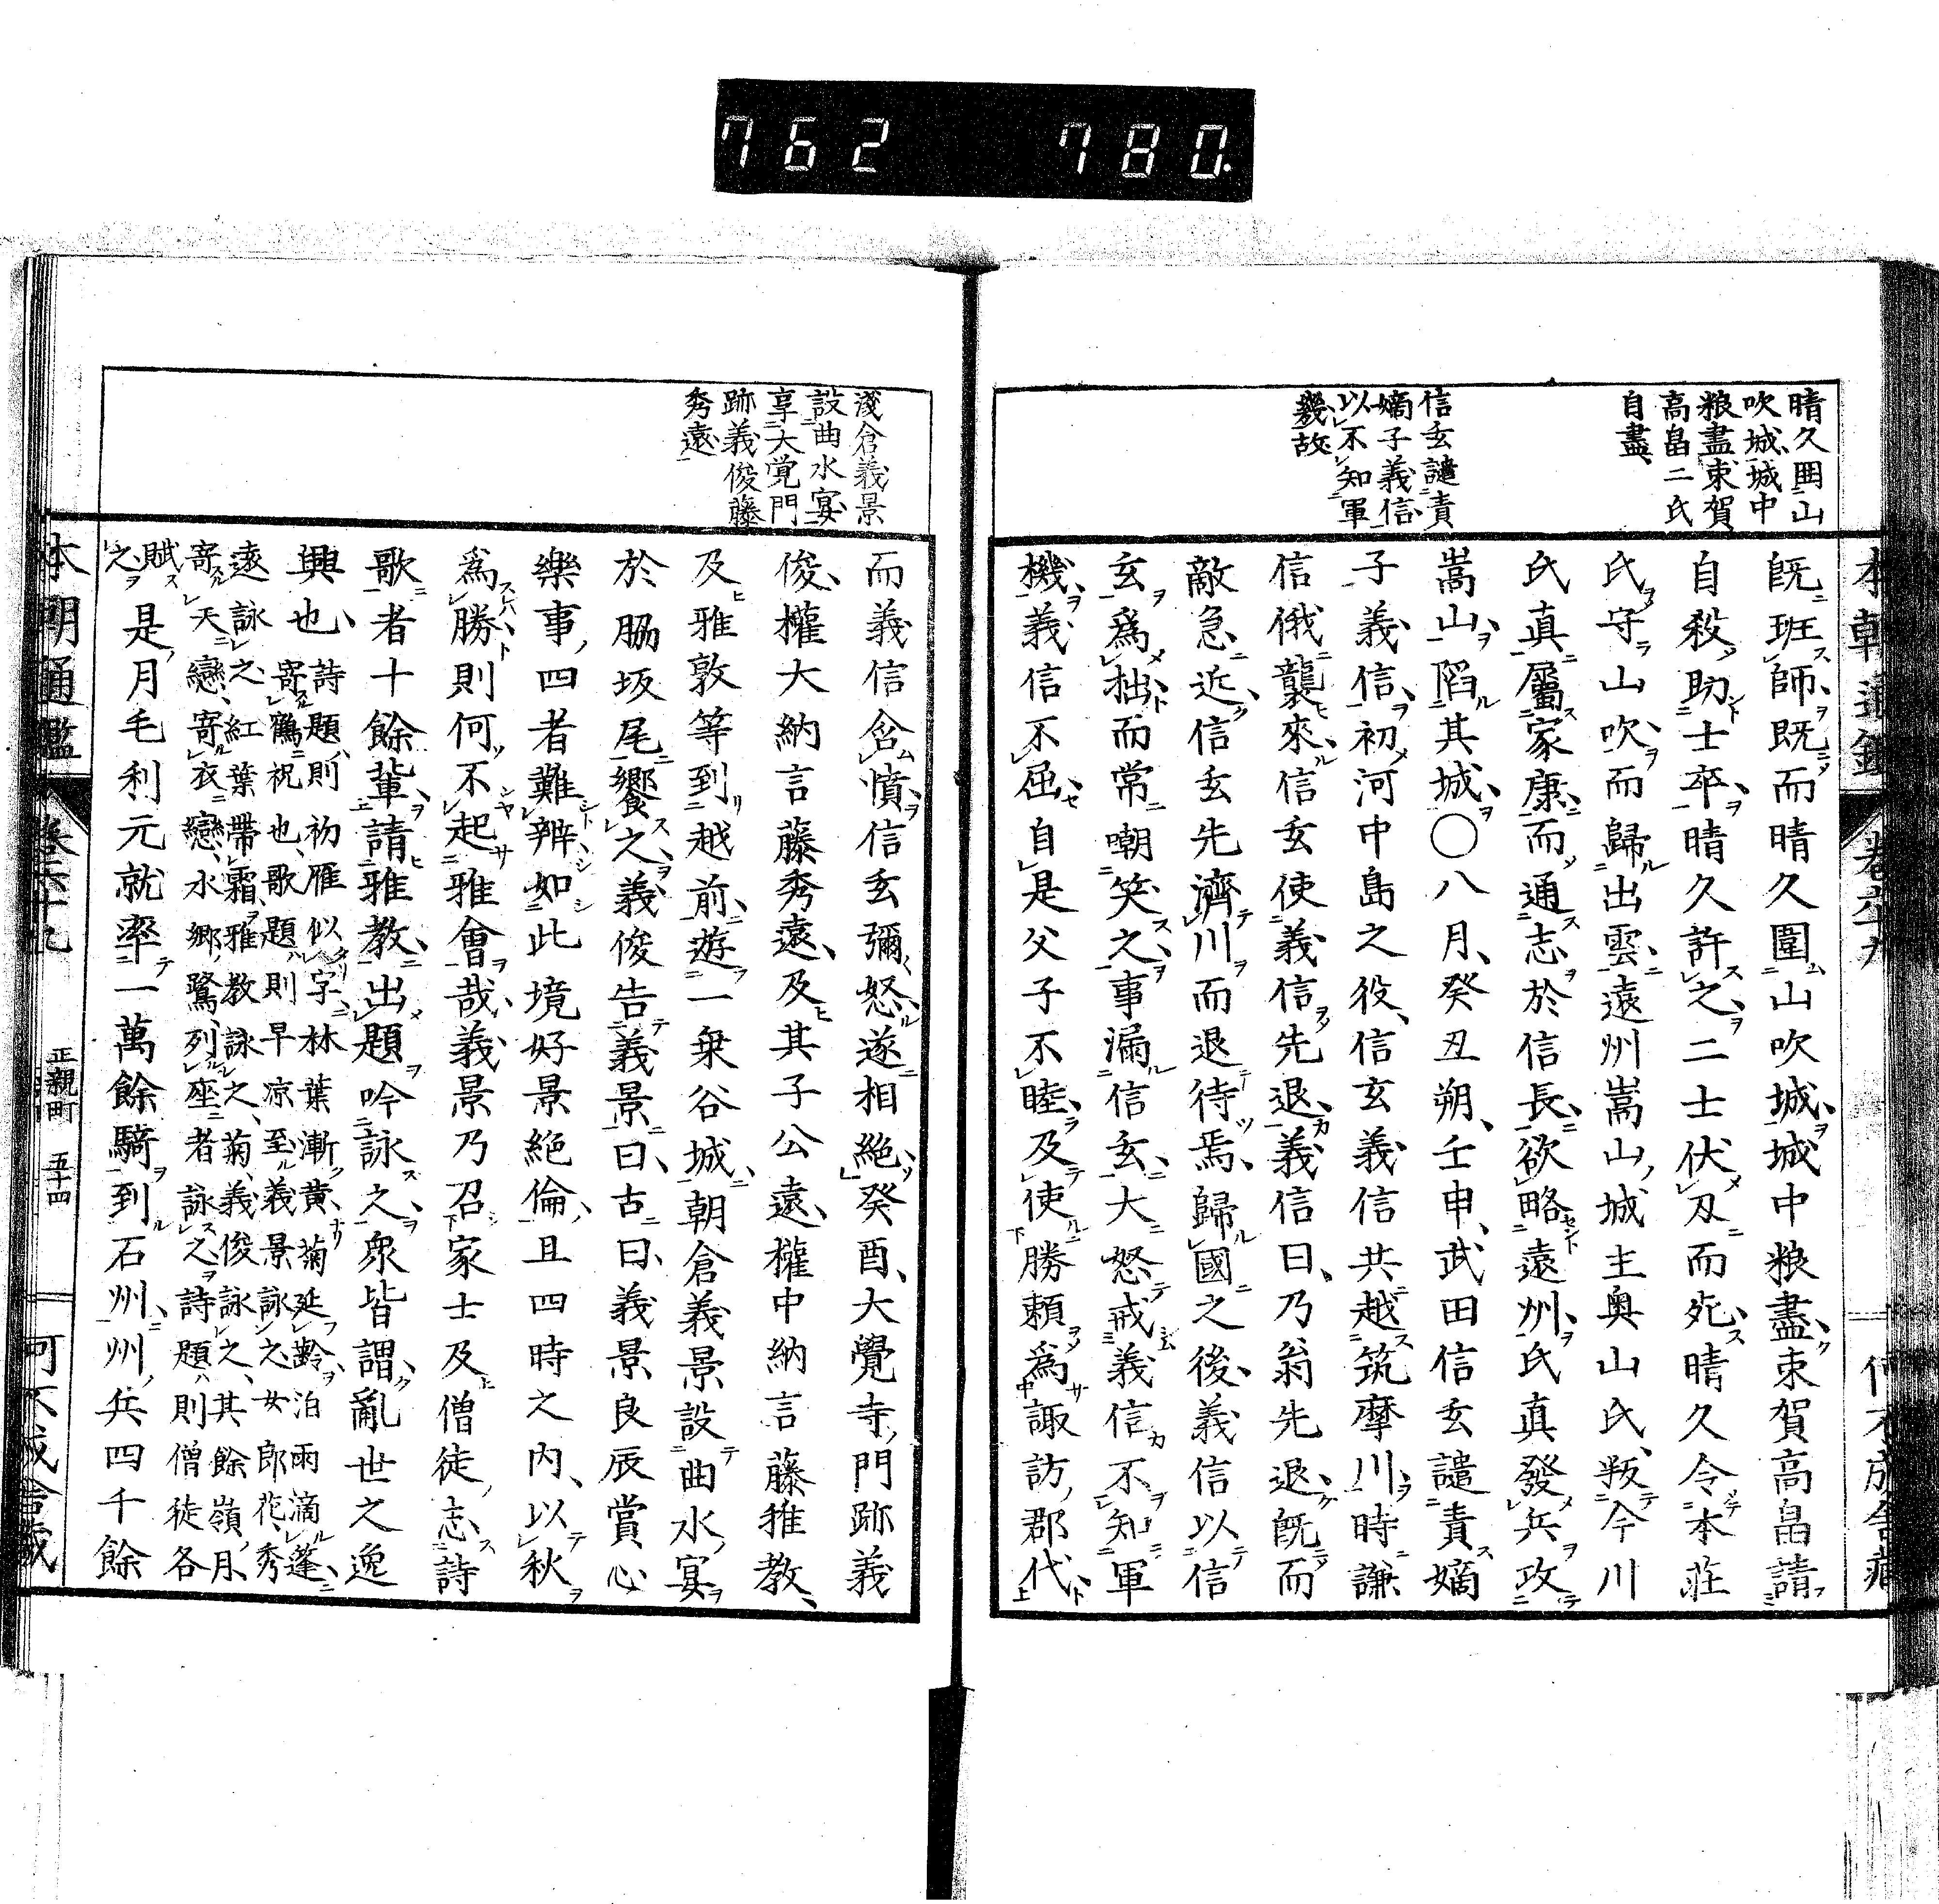 762 780.
本朝通鑑 卷六十九 何不成舍藏
晴久囲山
吹城城中
粮盡束賀
高畠二氏
自盡
信玄譴責
嫡子義信
以不知軍
幾故
既班師既而晴久圍山吹城城中粮盡束賀高畠請
自殺助士卒晴久許之二士伏刃而死晴久令本莊
氏守山吹而歸出雲遠州嵩山城主奥山氏叛今川
氏真屬家康而通志於信長欲略遠州氏真發兵攻
嵩山陷其城〇八月癸丑朔壬申武田信玄譴責嫡
子義信初河中島之役信玄義信共越筑摩川時謙
信俄襲來信玄使義信先退義信曰乃翁先退既而
敵急近信玄先濟川而退待焉歸國之後義信以信
玄爲拙而常嘲笑之事漏信玄大怒戒義信不知軍
機義信不屈自是父子不睦及使勝賴爲諏訪郡代
淺倉義景
設曲水宴
享大覚門
跡義俊藤
秀遠
而義信含憤信玄彌怒遂相絶癸酉大覺寺門跡義
俊權大納言藤秀遠及其子公遠權中納言藤雅教
及雅敦等到越前遊一乗谷城朝倉義景設曲水宴
於脇坂尾饗之義俊告義景曰古曰義景良辰賞心
樂事四者難辨如此境好景絶倫且四時之内以秋
爲勝則何不起雅會哉義景乃召家士及僧徒志詩
歌者十餘輩請雅教出題吟詠之衆皆謂亂世之逸
興也
詩題則初雁似字林葉漸黄菊延齡泊雨滴蓬
寄鶴祝也歌題則早凉至義景詠之女郎花秀
遠詠之紅葉帶霜雅教詠之菊義俊詠之其餘嶺月
寄天戀寄衣戀水郷鷺列座者詠之詩題則僧徒各
賦之
是月毛利元就率一萬餘騎到石州州兵四千餘
本朝通鑑 卷六十九 正親町 五十四 何不成舍藏